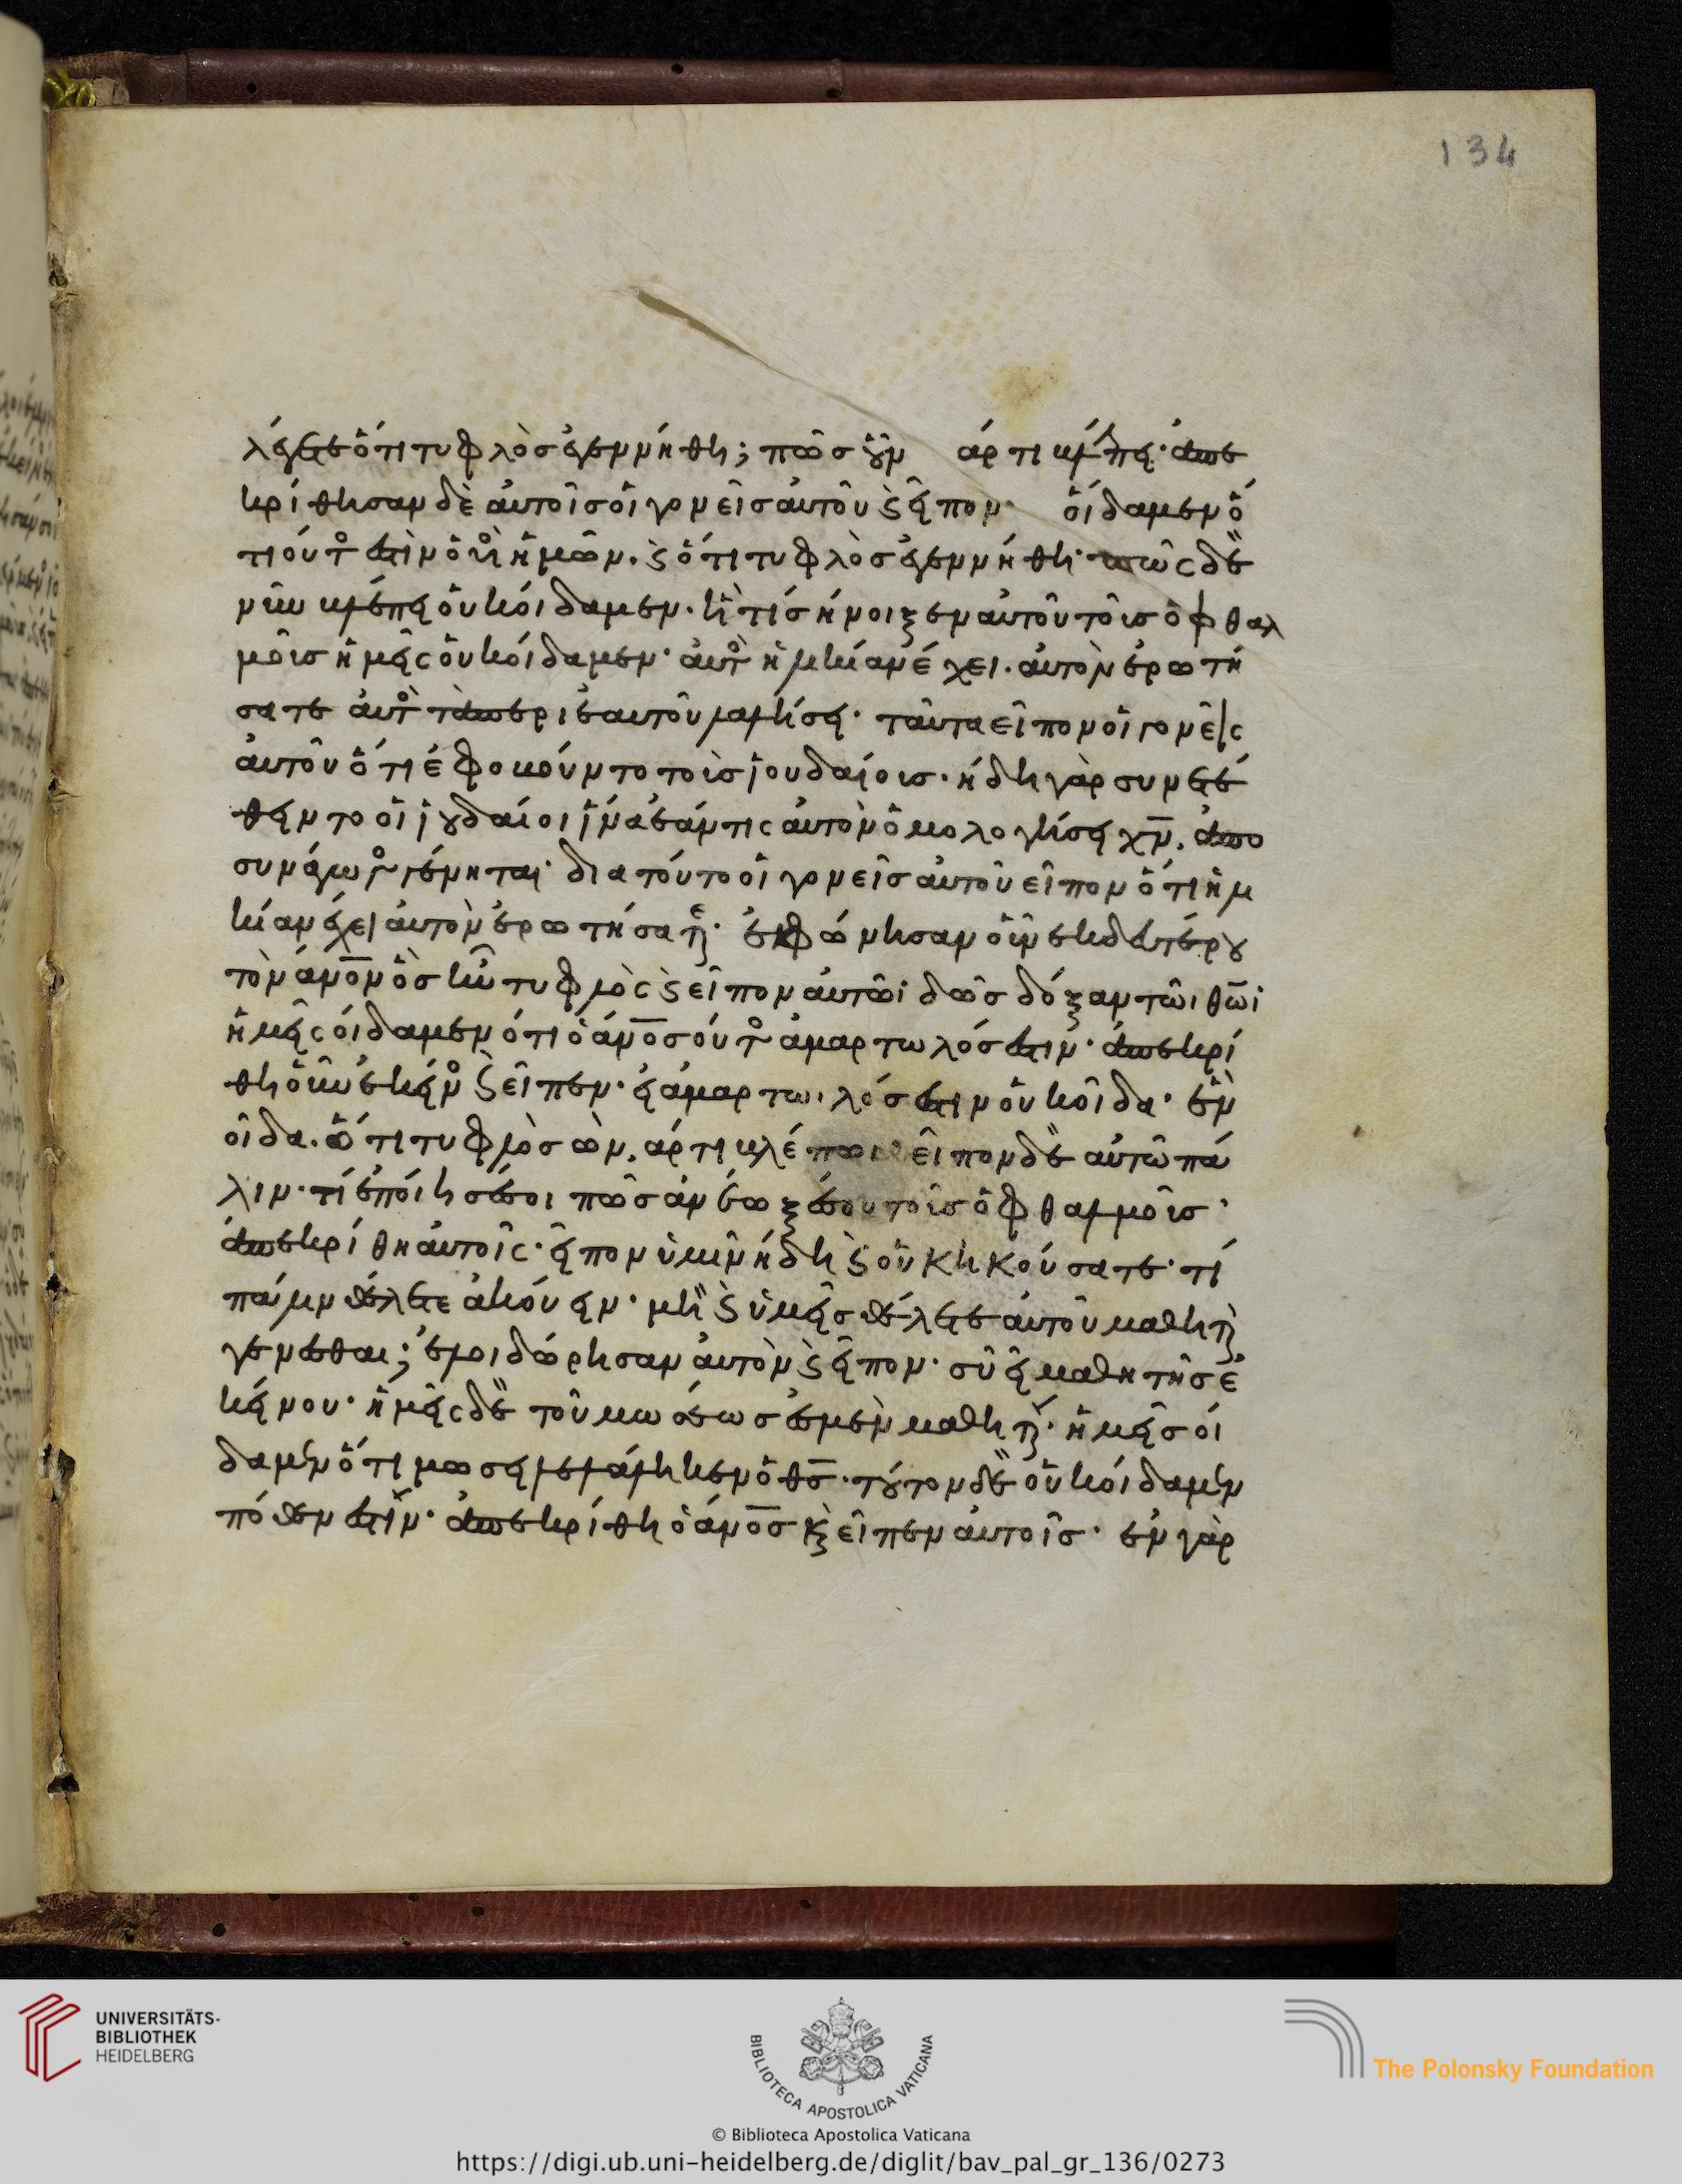 134
λέγετε ὅτι τυφλὸσ ἐγεννήθη; πῶσ οὖν ἄρτι βλέπει· ἀπε
κρίθησαν δὲ αὐτοῖσ οἱ γονεῖσ αὐτοῦ καὶ εἶπον· οἴδαμεν ὅ
τι οὗτός ἐστὶν ὁ υἱὸς ἡμῶν. καὶ ὅτι τυφλὸσ ἐγεννήθη· πῶς δὲ
νῦν βλέπει οὐκ οἴδαμεν. ἢ τίσ ἤνοιξεν αὐτοῦ τοῖσ ὀφθαλ
μοῖσ ἡμεῖς οὐκ οἴδαμεν· αὐτὸς ἡλικίαν ἔχει. αὐτὸν ἐρωτή
σατε αὐτὸς τὰ περὶ ἑαυτοῦ λαλήσει· ταῦτα εἶπον οἱ γονεῖς
αὐτοῦ ὅτι ἐφοβοῦντο τοῖσ ἰουδαίοισ· ἤδη γὰρ συνετέ
θειντο οἱ ἰουδαίοι ἵνα ἐάν τις αὐτὸν ὁμολογήσει χν̅. ἀπο
συνάγωγος γένηται· διατοῦτο οἱ γονεῖσ αὐτοῦ εἶπον ὅτι ἡλ
ικίαν ἔχει αὐτὸν ἐρωτήσατε· ἐφώνησαν οὖν ἐκ δευτέρου
τὸν ἀν̅ον ὃσ ἦν τυφλὸς καὶ εἶπον αὐτῶι δῶσ δόξαν τῶι θω̅ι
ἡμεῖς οἴδαμεν ὅτι ὁ ἀν̅οσ οὗτος ἁμαρτωλόσ ἐστιν· ἀπεκρί
θη οὖν ἐκεῖνος καὶ εἶπεν· εἰ ἁμαρτωλόσ ἐστιν οὐκ οἶδα· ἓν
οἶδα. ὅτι τυφλὸσ ὢν. ἄρτι βλέπω εἶπον δὲ αὐτῶ πά
λιν· τί ἐποίησέ σοι πῶσ ἀνέωξέ σου τοῖσ ὀφθαλμοῖσ·
ἀπεκρίθη αὐτοῖς· εἶπον ὑμῖν ἤδη καὶ οὐκ ηκούσατε· τί
πάλιν θέλετε ἀκούειν· μὴ καὶ ὑμεῖσ θέλετε αὐτοῦ μαθηταὶ
γενεσθαι; ἐλοιδώρησαν αὐτὸν καὶ εἶπον· σὺ εἶ μαθητῆσ ἐ
κείνου· ἡμεῖς δὲ τοῦ μωσέωσ ἐσμεὶν μαθηταί· ἡμεῖσ οἴ
δαμεν ὅτι μωσεῖ λελάληκεν ὁ θσ̅· τοῦτον δὲ οὐκ οἴδαμεν
πόθεν ἐστίν· ἀπεκρίθη ὁ ἀν̅οσ καὶ εἶπεν αὐτοῖσ· ἐν γὰρ
UNIVERSITÄTS-
BIBLIOTHEK
HEIDELBERG
BIBLIOTECA APOSTOLICA VATICANA
The Polonsky Foundation
© Biblioteca Apostolica Vaticana
https://digi.ub.uni-heidelberg.de/diglit/bav_pal_gr_136/0273